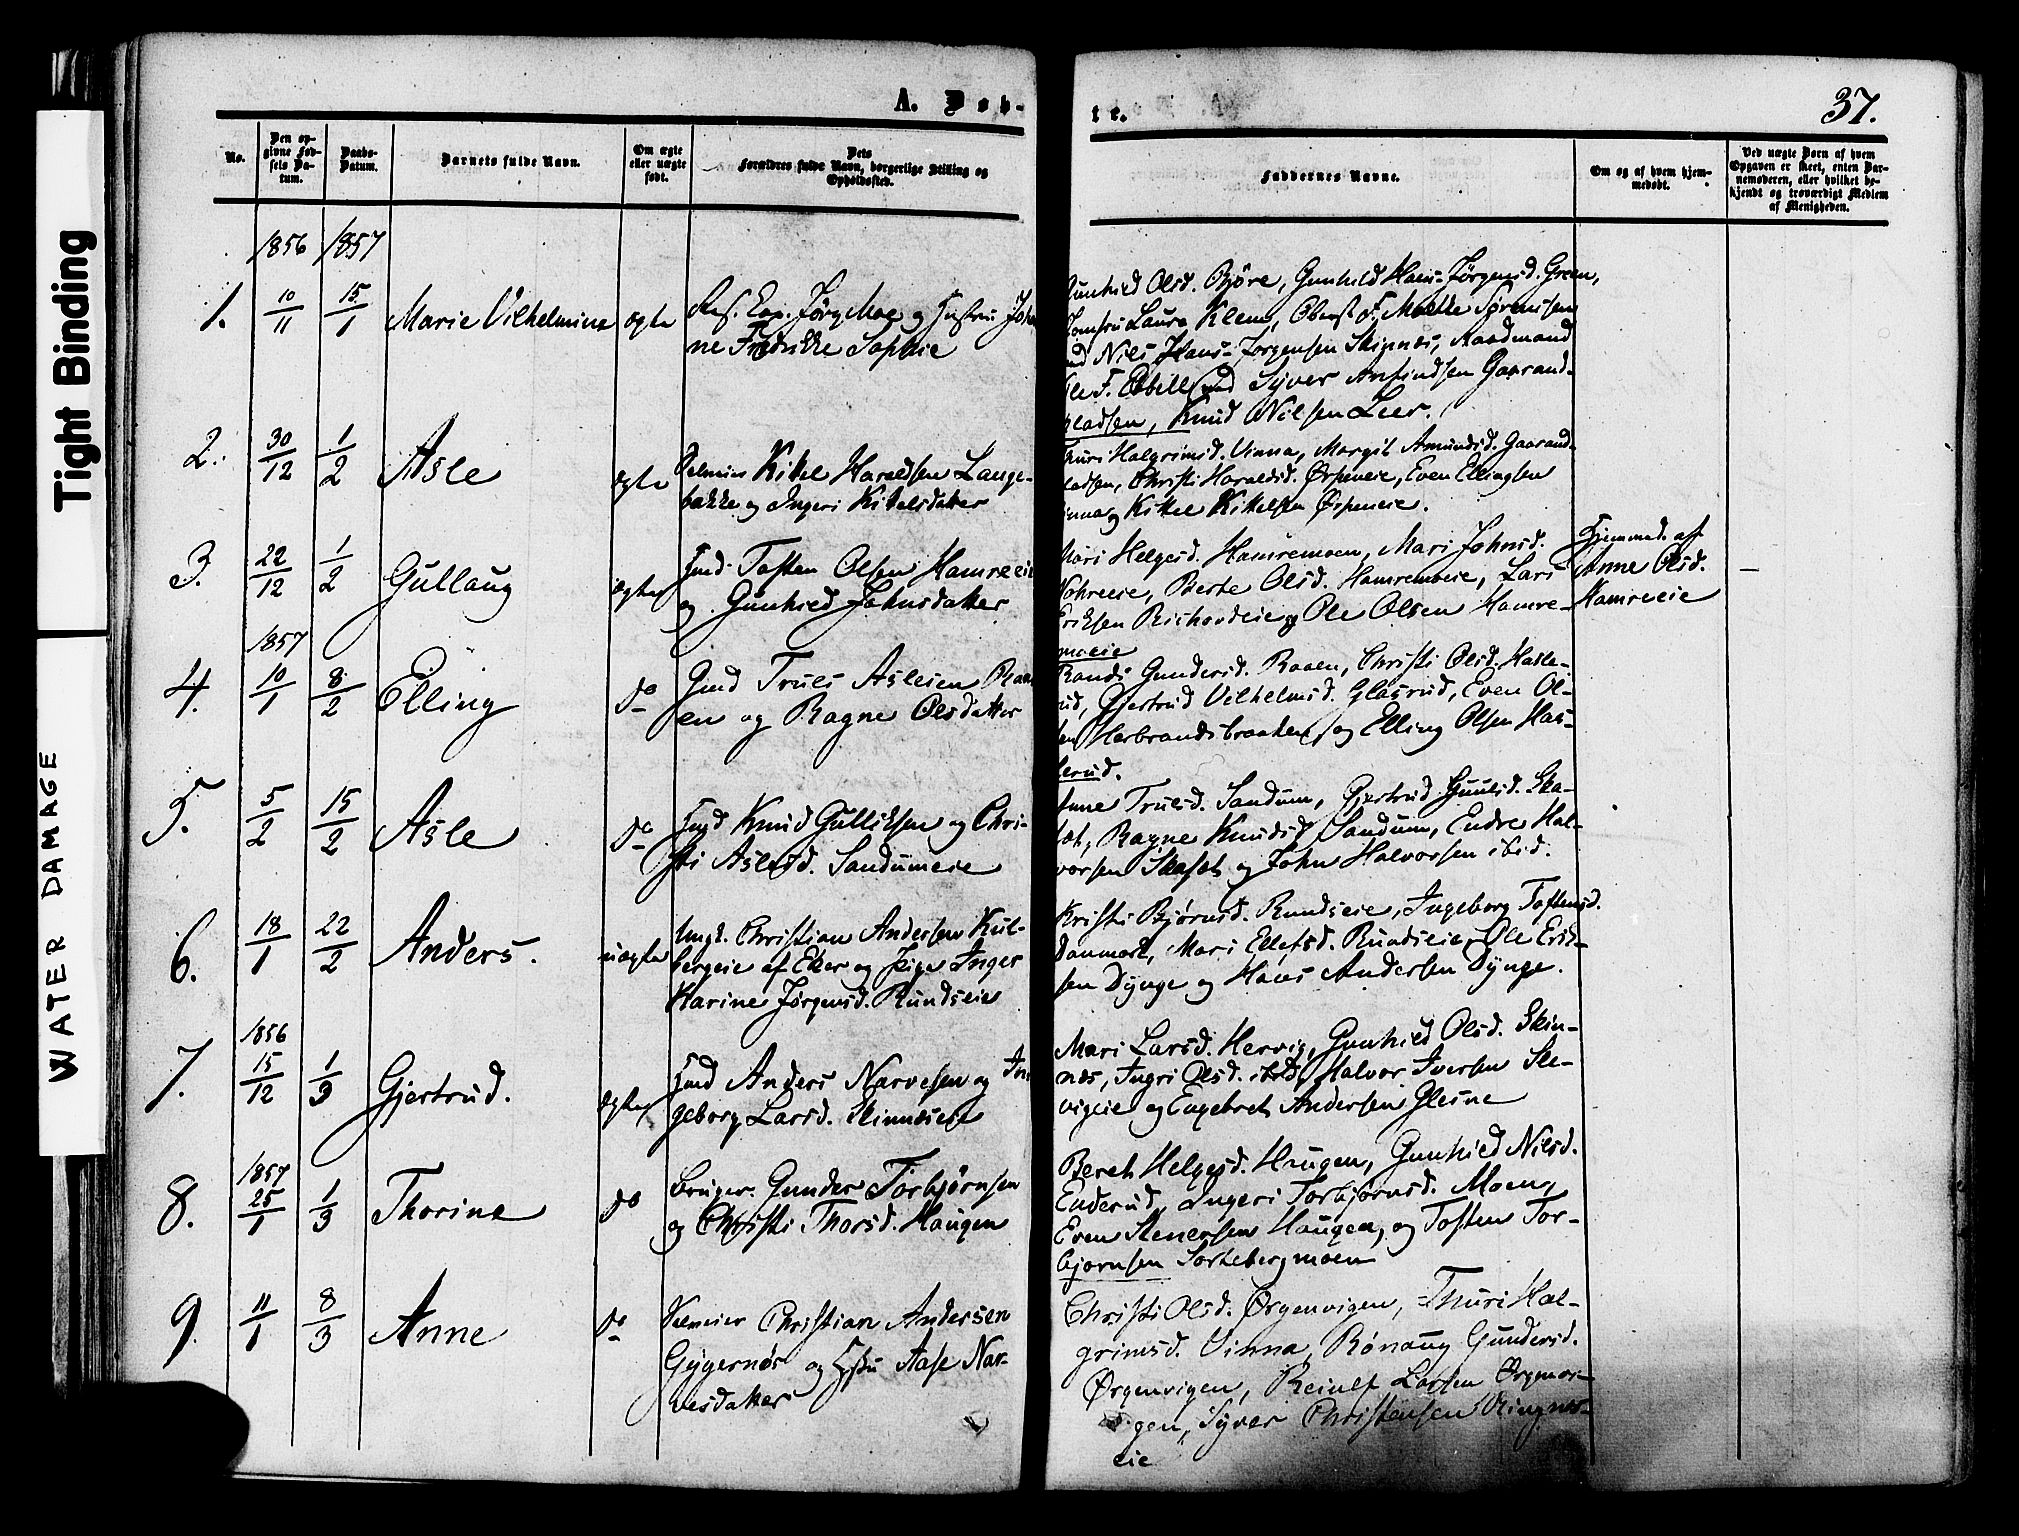 Tight Binding
WATER DAMAGE
A. Døb-
te.
37.
No.
Den op-
givne Fød-
sels Da-
tum.
Daabs-
Datum.
Barnets fulde Navn.
Om ægte
eller uægte
født.
Dets
Forældres fulde Navn, borgerlige Stilling og
Opholdssted.
Faddernes Navne.
Om og af hvem hjem-
medøbt.
Ved uægte Børn af hvem
Opgaven er skeet, enten Bar-
nemoderen, eller hvilket be-
kjendt og troværdigt Medlem
af Menigheden.
1856 1857
1. 10/11 15/1 Marie Vilhelmine ægte Jørg Moe og Hustru Joh
ne Fredrikke Sophie
Gunhild Olsd. Bjøre, Gunhild Hans-Jørgensd. Green,
Jomfru Laura Klem, Oberst F. Moltke Sørenssen
Nils Hans-Jørgensen Skinnes, Raadmand
Syver Anfindsen Gaarand-
Knud Nilsen Leer.
2. 30/12 1/2 Asle ægte Selveier Kittel Haraldsen Lange-
bakke og Ingeri Kittelsdatter
Thuri Halgrimsd. Vinna, Margit Amundsd. Gaarand-
ladsen, Christi Haraldsd. Ørpeneie, Even Ellingsen
Vinna og Kittel Kittelsen Ørpeneie.
3. 22/12 1/2 Gullaug ægte Hmd. Tosten Olsen Hamreeie
og Gunhild Johnsdatter
Mari Helgesd. Hamremoen, Mari Johnsd.
Berte Olsd. Hamremoeie, Lars
Eriksen og Ole Olsen Hamre-
moeie
Hjemmed. af
Anne Olsd.
Hamreeie
—
1857
4. 10/1 8/2 Elling do Hmd Truls Aslesen Raa
en og Ragne Olsdatter
Randi Gundersd. Raaen, Christi Olsd. Hasle-
rud, Gjertrud Vilhelmsd. Glasrud, Even Ol-
sen Herbrandsbraaten og Elling Olsen Has-
lerud.
5. 5/2 15/2 Asle do Hmd Knud Gulliksen og Chri-
sti Aslesd. Sandumeie
Anne Trulsd. Sandum, Gjertrud Guulsd. Ska-
læt, Ragne Knudsd. Sandum, Endre Hal-
vorsen og John Halvorsen ibid.
6. 18/1 22/2 Anders. uægte Ungk. Christian Andersen Kul-
bergeie af Eker og Pige Inger
Karine Jørgensd. Rundseie
Kristi Bjørnsd. Rundseie, Ingeborg Tostensd.
Danmark, Mari Ellefsd. Rundseie, Ole Erik-
sen Dynge og Hans Andersen Dynge.
1856
7. 15/12 1/3 Gjertrud. ægte Hmd Anders Narvesen og In
geborg Larsd. Skinnæseie
Mari Larsd. Hervig, Gunhild Olsd. Skin-
næs, Ingri Olsd. ibid, Halvor Iversen Sle-
vigeie og Engebret Andersen Glesne
1857
8. 25/1 1/3 Thorine do Bruger. Gunder Torbjørnsen
og Christi Thorsd. Haugen
Bereth Helgesd. Haugen, Gunhild Nilsd.
Enderud, Ingeri Torbjørnsd. Moen,
Even Stenersen Haugen, og Tosten Tor-
bjørnsen Sortebergmoen
9. 11/1 8/3 Anne do Selveier Christian Andersen
Gygernøs og Hstu Aase Nar-
vesdatter
Christi Olsd. Ørgenvigen, Thuri Hal-
grimsd. Vinna, Rønaug Gundersd.
Ørgenvigen, Reiulf Larsen Ørgenvi-
gen, Syver Christensen Ringnes-
eie